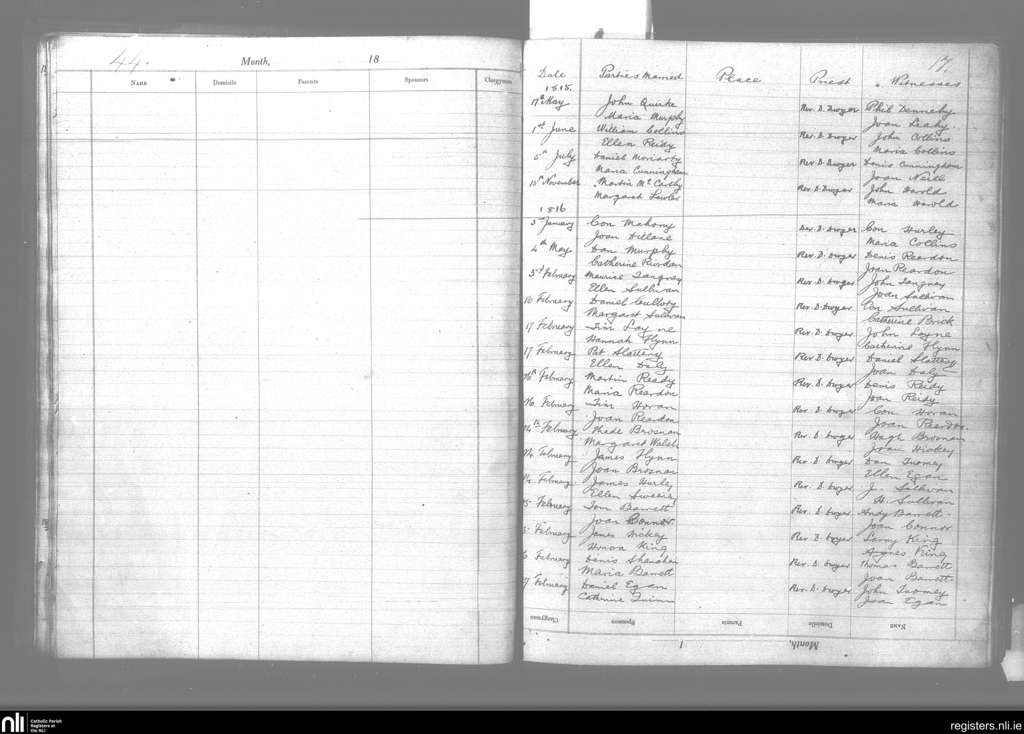 44.
Month, 18
Name Domicile Parents Sponsors Clergyman
17.
Date Parties Married Place Priest Witnesses
1815.
17th May John Quirke Rev. D. Dwyer Phil Dennehy
Maria Murphy Joan Leahy
1st June William Collins Rev. D. Dwyer John Collins
Ellen Reidy Maria Collins
5th July Daniel Moriarty Rev. D. Dwyer Denis Cunningham
Maria Cunningham Joan Neill
15th November Martin McCarthy Rev. D. Dwyer John Harold
Margaret Lawlor Maria Harold
1816
3rd January Con Mahony Rev. D. Dwyer Con Hurley
Joan Dillane Maria Collins
4th May Dan Murphy Rev. D. Dwyer Denis Reardon
Catherine Riordan Joan Reardon
3rd February Maurice Tangney Rev. D. Dwyer John Tangney
Ellen Sullivan Joan Sullivan
16 February Daniel Culloty Rev. D. Dwyer Con Sullivan
Margaret Sullivan Catherine Brick
17 February Tim Layne Rev. D. Dwyer John Layne
Hannah Flynn Catherine Flynn
17 February Pat Slattery Rev. D. Dwyer Daniel Slattery
Ellen Daly Joan Daly
February Martin Ready Rev. D. Dwyer Denis Reidy
Maria Reardon Joan Reidy
16 February Tim Horan Rev. D. Dwyer Con Horan
Joan Reardon Joan Reardon
14th February Thade Brosnan Rev. D. Dwyer Hugh Brosnan
Margaret Walsh Joan Hickey
14 February James Flynn Rev. D. Dwyer Dan Twomey
Joan Brosnan Ellen Egan
February James Hurley Rev. D. Dwyer J. Sullivan
Ellen Sweeney H. Sullivan
February Tom Barrett Rev. D. Dwyer Andy Barrett
Joan Connor Joan Connor
February James Hickey Rev. D. Dwyer Larry King
Honora King Agnes King
February Denis Shanahan Rev. D. Dwyer Thomas Barrett
Maria Barrett Joan Barrett
February Daniel Egan Rev. D. Dwyer John Twomey
Catherine Quinn Joan Egan
Clergyman Sponsors Parents Domicile Name
1 Month,
nli Catholic Parish
Registers at
the NLI
registers.nli.ie